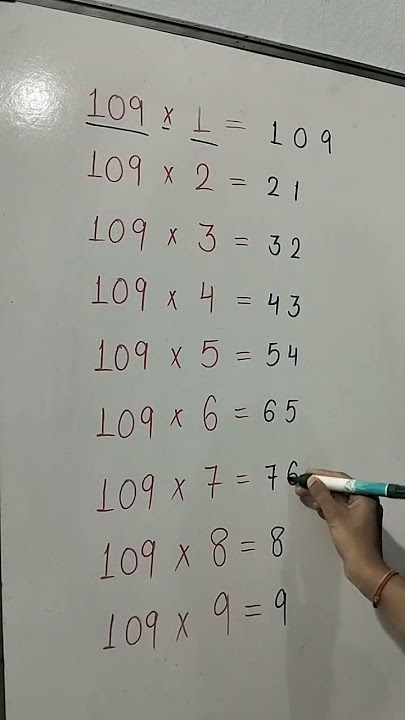 109 × 1 = 109
109 × 2 = 21
109 × 3 = 32
109 × 4 = 43
109 × 5 = 54
109 × 6 = 65
109 × 7 = 76
109 × 8 = 8
109 × 9 = 9